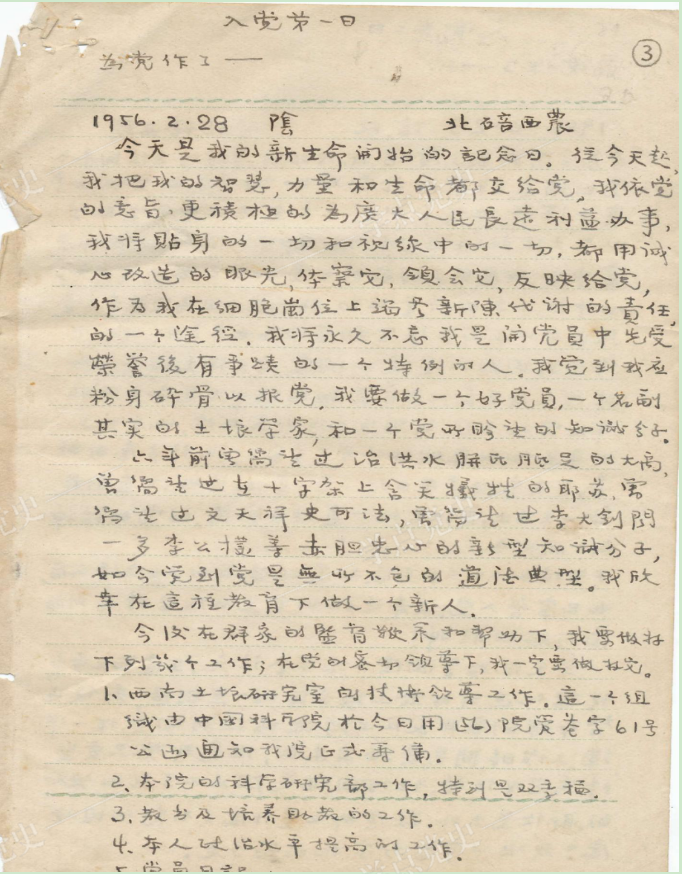 入党第一日
③
为党作了——
1956.2.28 陰 北碚西農
今天是我的新生命開始的記念日。從今天起,
我把我的智慧,力量和生命都交給党,我依党
的意旨,更積極的為廣大人民長遠利益办事,
我将貼身的一切和視線中的一切,都用誠
心改造的眼光,体察它,領会它,反映給党,
作为我在細胞崗位上竭尽新陳代謝的責任,
的一个途徑。我将永久不忘我是開党員中先受
榮誉後有事蹟的一个特例的人。我党到我应
粉身碎骨以报党。我要做一个好党員,一个名副
其实的土壤学家,和一个党所盼望的知識分子。
六年前曾崇 过治洪水胼 胝足的大禹,
曾 过在十字架上含笑犧牲的耶苏,曾
过文天祥史可法,曾 过李大釗聞
一多李公樸等赤胆忠心的新型知識分子,
如今党到党是無所不包的道法典型。我欣
幸在這種教育下做一个新人。
今後在群衆的監督 和帮助下,我要做好
下列幾个工作;在党的密切領導下,我一定要做好它。
1.西南土壤研究室的技術領導工作。這一个组
織由中国科学院於今日用(56)院 字61号
公函通知我院正式筹備。
2.本院的科学研究部工作,特別是双季稻。
3.教书及培养助教的工作。
4.本人政治水平提高的工作。
5.党員日記